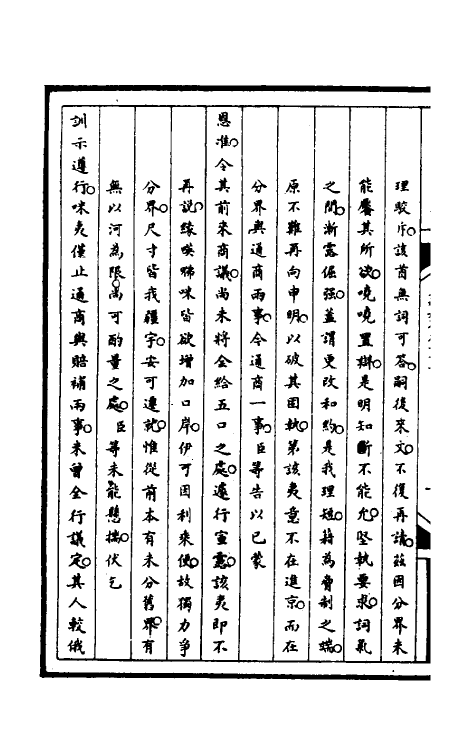 理駁斥。該酋無詞可答。嗣後來文。不復再請。茲因分界未
能饜其所欲。嘵嘵置辯。是明知斷不能允。堅執要求。詞氣
之間。漸露倔强。蓋謂更改和約。是我理短。藉為脅制之端。
原不難再向申明。以破其固執。第該夷意不在進京。而在
分界與通商兩事。今通商一事。臣等告以已蒙
恩准。令其前來商議。尚未將全給五口之處。遽行宣露。該夷即不
再說。緣𠸄咈咪皆欲增加口岸。伊可因利乘便。故獨力爭
分界。尺寸皆我疆宇。安可遷就。惟從前本有未分舊界。有
無以河為限。尚可酌量之處。臣等未能懸揣。伏乞
訓示遵行。咪夷僅止通商與賠補兩事。未曾全行議定。其人較俄